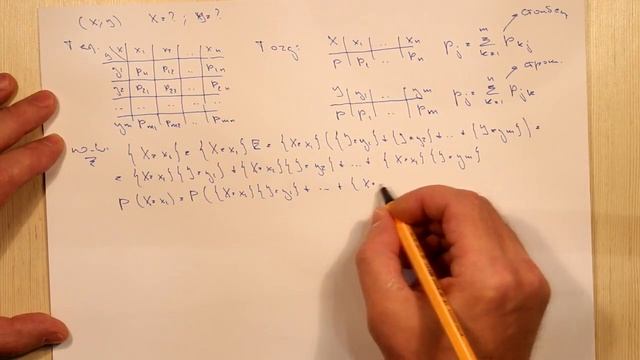 (x, y) X=? ; y=?
X x₁ x₂ .. xₙ
y
y₁ p₁₁ p₁₂ .. p₁ₙ
y₂ p₂₁ p₂₂ .. p₂ₙ
.. .. .. .. ..
yₘ pₘ₁ pₘ₂ .. pₘₙ
Тогда:
X x₁ .. xₙ
P p₁ .. pₙ
pⱼ = Σ_{k=1}^{m} p_{kj} столбец
y y₁ .. yₘ
P p₁ .. pₘ
pⱼ = Σ_{k=1}^{n} p_{jk} строк.
{X=x₁} = {X=x₁} E = {X=x₁} ({Y=y₁} + {Y=y₂} + .. + {Y=yₘ}) =
= {X=x₁}{Y=y₁} + {X=x₁}{Y=y₂} + .. + {X=x₁}{Y=yₘ}
P(X=x₁) = P({X=x₁}{Y=y₁} + ... + {X=